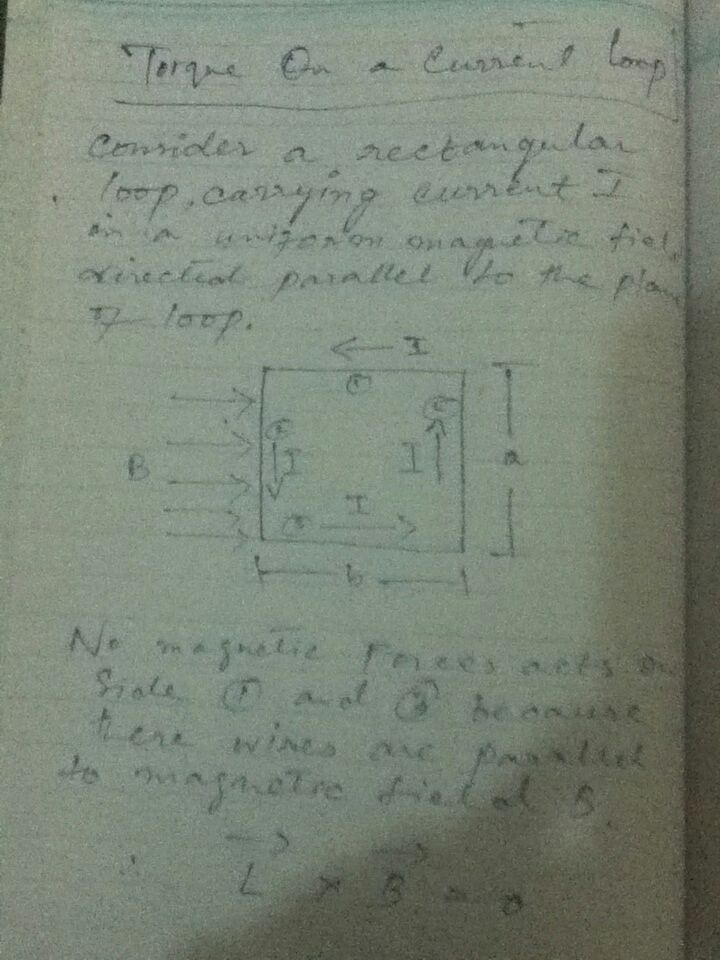 Torque On a Current loop
Consider a rectangular
loop, carrying current I
in a uniform magnetic fiel
directed parallel to the plane
of loop.
← I
①
B
I
I
a
I
b
No magnetic Forces acts on
Side ① and ③ because
there wires are parallel
to magnetic field B.
∴ L × B = 0